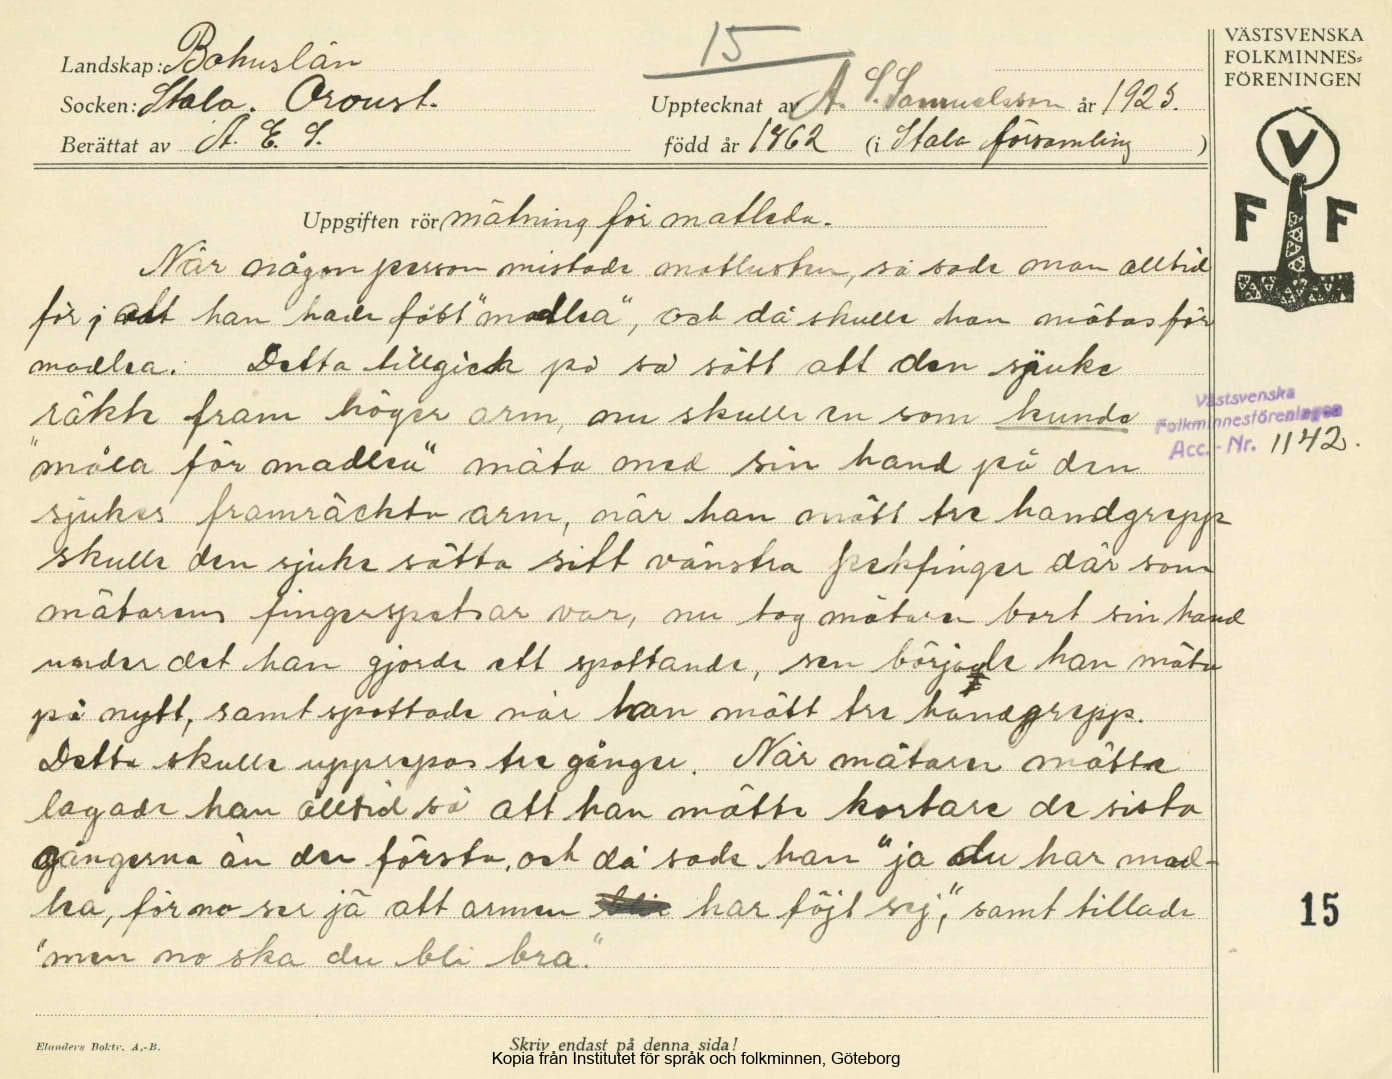 15
VÄSTSVENSKA
FOLKMINNES-
FÖRENINGEN
Landskap: Bohuslän
Socken: Stala. Oroust.
Upptecknat av A. S. Samuelsson år 1925.
Berättat av A. E. S.
född år 1862 (i Stala församling)
V
F F
Uppgiften rör mätning för matleda.
När någon person mistade matlusten, så sade man alltid
förr att han hade fött "madlea", och då skulle han mätas för
madlea. Detta tillgick på så sätt att den sjuke
räkte fram höger arm, nu skulle en som kunde
"mäla för madlea" mäta med sin hand på den
sjukes framräckta arm, när han mätt tre handgrepp
skulle den sjuke sätta sitt vänstra pekfinger där som
mätarens fingerspetsar var, nu tog mätaren bort sin hand
under det han gjorde ett spottande, sen började han mäta
på nytt, samt spottade när han mätt tre handgrepp.
Detta skulle upprepas tre gånger. När mätaren mätte
lagade han alltid så att han mätte kortare de sista
gångerna än den första, och då sade han "ja du har mad-
lea, för no ser jä att armen har föjt sej", samt tillade
"men no ska du bli bra."
Västsvenska
Folkminnesföreningen
Acc.-Nr. 1142.
15
Elanders Boktr. A.-B.
Skriv endast på denna sida!
Kopia från Institutet för språk och folkminnen, Göteborg